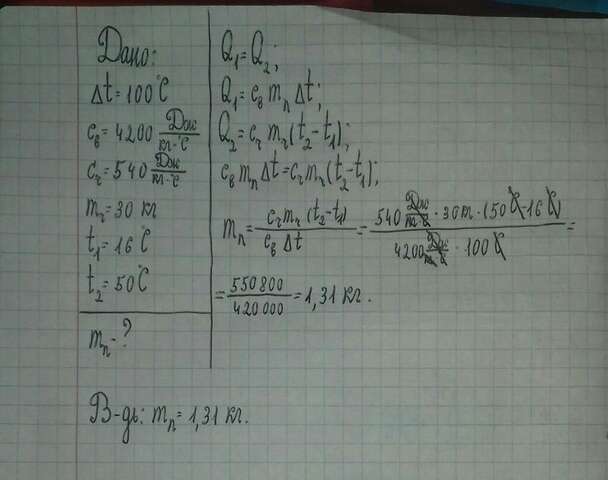 Дано:
Δt = 100°C
cв = 4200 Дж/кг·°C
cч = 540 Дж/кг·°C
mч = 30 кг
t₁ = 16°C
t₂ = 50°C
mп - ?
Q₁ = Q₂;
Q₁ = cв mп Δt;
Q₂ = cч mч (t₂ - t₁);
cв mп Δt = cч mч (t₂ - t₁);
mп = cч mч (t₂ - t₁) / cв Δt = 540 Дж/кг·°C · 30 кг · (50°C - 16°C) / 4200 Дж/кг·°C · 100°C =
= 550800 / 420000 = 1,31 кг.
В-дь: mп = 1,31 кг.